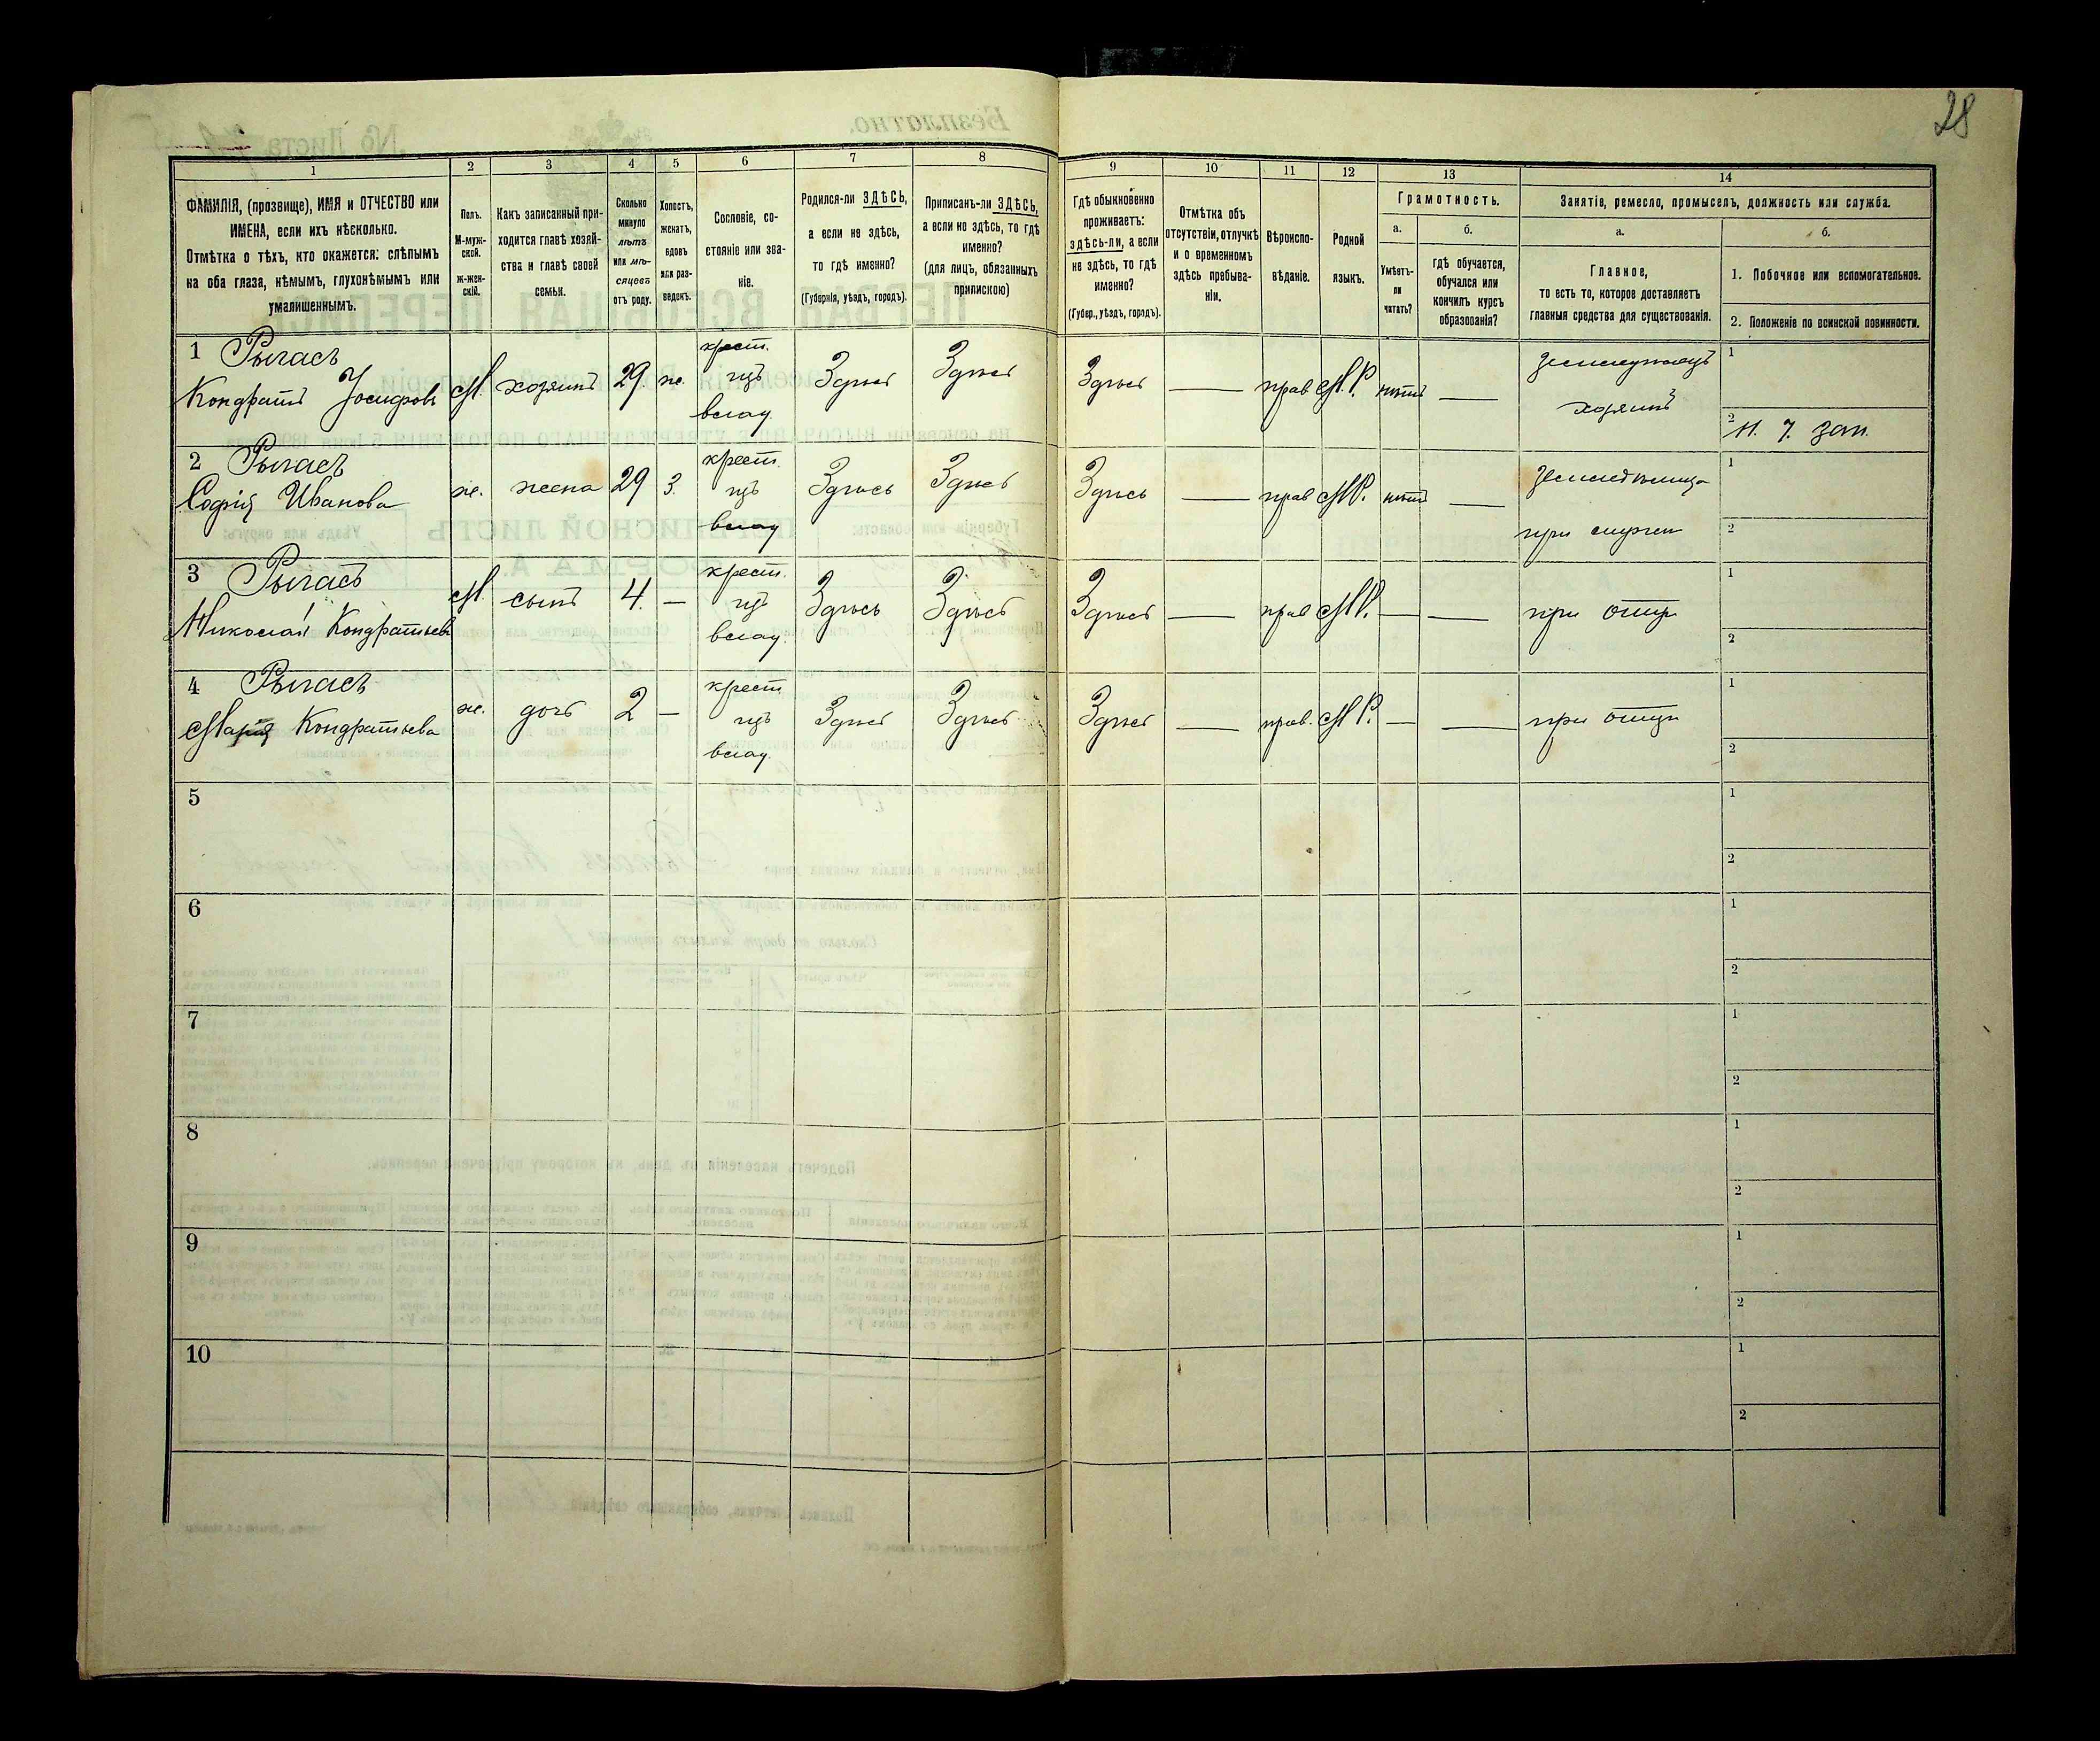 28
1
2
3
4
5
6
7
8
9
10
11
12
13
14
ФАМИЛІЯ, (прозвище), ИМЯ и ОТЧЕСТВО или
ИМЕНА, если ихъ нѣсколько.
Отмѣтка о тѣхъ, кто окажется: слѣпымъ
на оба глаза, нѣмымъ, глухонѣмымъ или
умалишеннымъ.
Полъ.
М-муж-
ской.
ж-жен-
скій.
Какъ записанный при-
ходится главѣ хозяй-
ства и главѣ своей
семьи.
Сколько
минуло
лѣтъ
или мѣ-
сяцевъ
отъ роду.
Холостъ,
женатъ,
вдовъ
или раз-
веденъ.
Сословіе, со-
стояніе или зва-
ніе.
Родился-ли ЗДѢСЬ,
а если не здѣсь,
то гдѣ именно?
(Губернія, уѣздъ, городъ).
Приписанъ-ли ЗДѢСЬ,
а если не здѣсь, то гдѣ
именно?
(для лицъ, обязанныхъ
припискою)
Гдѣ обыкновенно
проживаетъ:
здѣсь-ли, а если
не здѣсь, то гдѣ
именно?
(Губер., уѣздъ, городъ).
Отмѣтка объ
отсутствіи, отлучкѣ
и о временномъ
здѣсь пребыва-
ніи.
Вѣроиспо-
вѣданіе.
Родной
языкъ.
Грамотность.
а.
Умѣетъ-
ли
читать?
б.
гдѣ обучается,
обучался или
кончилъ курсъ
образованія?
Занятіе, ремесло, промыселъ, должность или служба.
а.
Главное,
то есть то, которое доставляетъ
главныя средства для существованія.
б.
1. Побочное или вспомогательное.
2. Положеніе по воинской повинности.
1 Рыгась
Кондратъ Іосифовъ
М.
хозяинъ
29.
ж.
крест.
изъ
влад.
Здѣсь
Здѣсь
Здѣсь
—
прав
М.Р.
нѣтъ
—
хозяинъ
1
2
4 зап.
2 Рыгась
Софія Иванова
ж.
жена
29
з.
крест.
изъ
влад
Здѣсь
Здѣсь
Здѣсь
—
прав
М.Р.
нѣтъ
—
при мужѣ
1
2
3 Рыгась
Николай Кондратьевъ
М.
сынъ
4.
—
крест.
изъ
влад.
Здѣсь
Здѣсь
Здѣсь
—
прав
М.Р.
—
—
при отцѣ
1
2
4 Рыгась
Марія Кондратьева
ж.
дочь
2
—
крест.
изъ
влад.
Здѣсь
Здѣсь
Здѣсь
—
прав.
М.Р.
—
—
при отцѣ
1
2
5
1
2
6
1
2
7
1
2
8
1
2
9
1
2
10
1
2